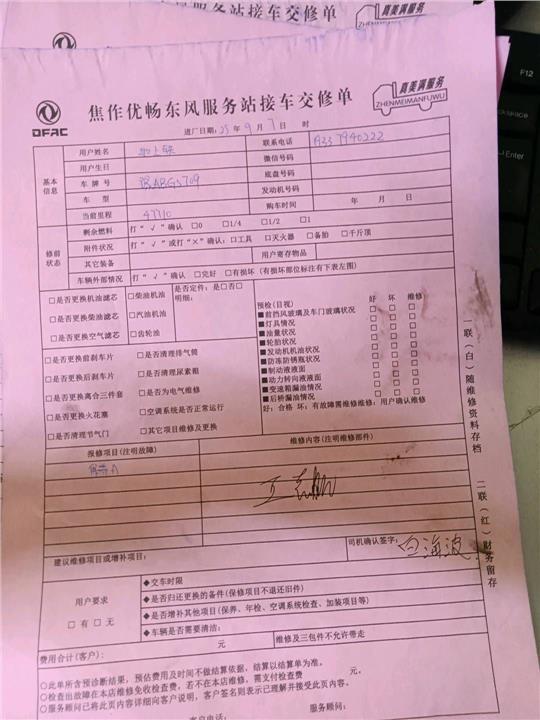 真美满服务
ZHENMEIMANFUWU
DFAC
焦作优畅东风服务站接车交修单
真美满服务
ZHENMEIMANFUWU
进厂日期: 23 年 9 月 7 日 时
基本信息
用户姓名
联系电话
用户生日
微信号码
车牌号
底盘号码
车型
发动机号码
当前里程 47710
购车时间 年 月 日
修前状态
剩余燃料 打“√”确认 □0 □1/4 □1/2 □1
附件状况 打“√”或打“×”确认: □工具 □灭火器 □备胎 □千斤顶
其它装备
用户寄存物品
车辆外部情况 打“√”确认 □完好 □有损坏 (有损坏部位标注有下表左图)
□是否更换机油滤芯
□是否更换柴油滤芯
□是否更换空气滤芯
□柴油机油
□汽油机油
□齿轮油
是否定件: 是□否□
明细:
□是否更换前刹车片
□是否更换后刹车片
□是否更换离合三件套
□是否更换火花塞
□是否清理节气门
□是否清理排气筒
□是否清理尿素粗
□是否为电气维修
□空调系统是否正常运行
□其它项目维修及更换
预检(目视) 好 坏 维修
■前挡风玻璃及车门玻璃状况 □ □ □
■灯具情况 □ □ □
■油量状况 □ □ □
■轮胎状况 □ □ □
■发动机机油状况 □ □ □
■防冻防锈瓶状况 □ □ □
■制动液液面 □ □ □
■动力转向液液面 □ □ □
■变速箱漏油情况 □ □ □
■后桥漏油情况 □ □ □
好: 合格 坏: 有故障需维修维修: 用户确认维修
报修项目(注明故障)
维修内容(注明维修部件)
保养A
建议维修项目或增补项目:
司机确认签字: 白海波
用户要求
□有 □无
◆交车时限
◆是否归还更换的备件(保修项目不退还旧件)
◆是否增补其他项目(保养、年检、空调系统检查、加装项目等)
◆车辆是否需要清洁:
费用合计(客户): 元
维修及三包件不允许带走
○此单所含预诊断结果, 预估费用及时间不做结算依据, 结算以结算单为准。
○检查出故障在本店维修免收检查费, 若不在本店维修, 需支付检查费 元。
○服务顾问已将此页内容详细向客户说明, 客户签名则表示已理解并接受此页内容。
客户电话:
服务顾问:
一联(白)随维修资料存档
二联(红)财务留存
F12
Backspace
Enter